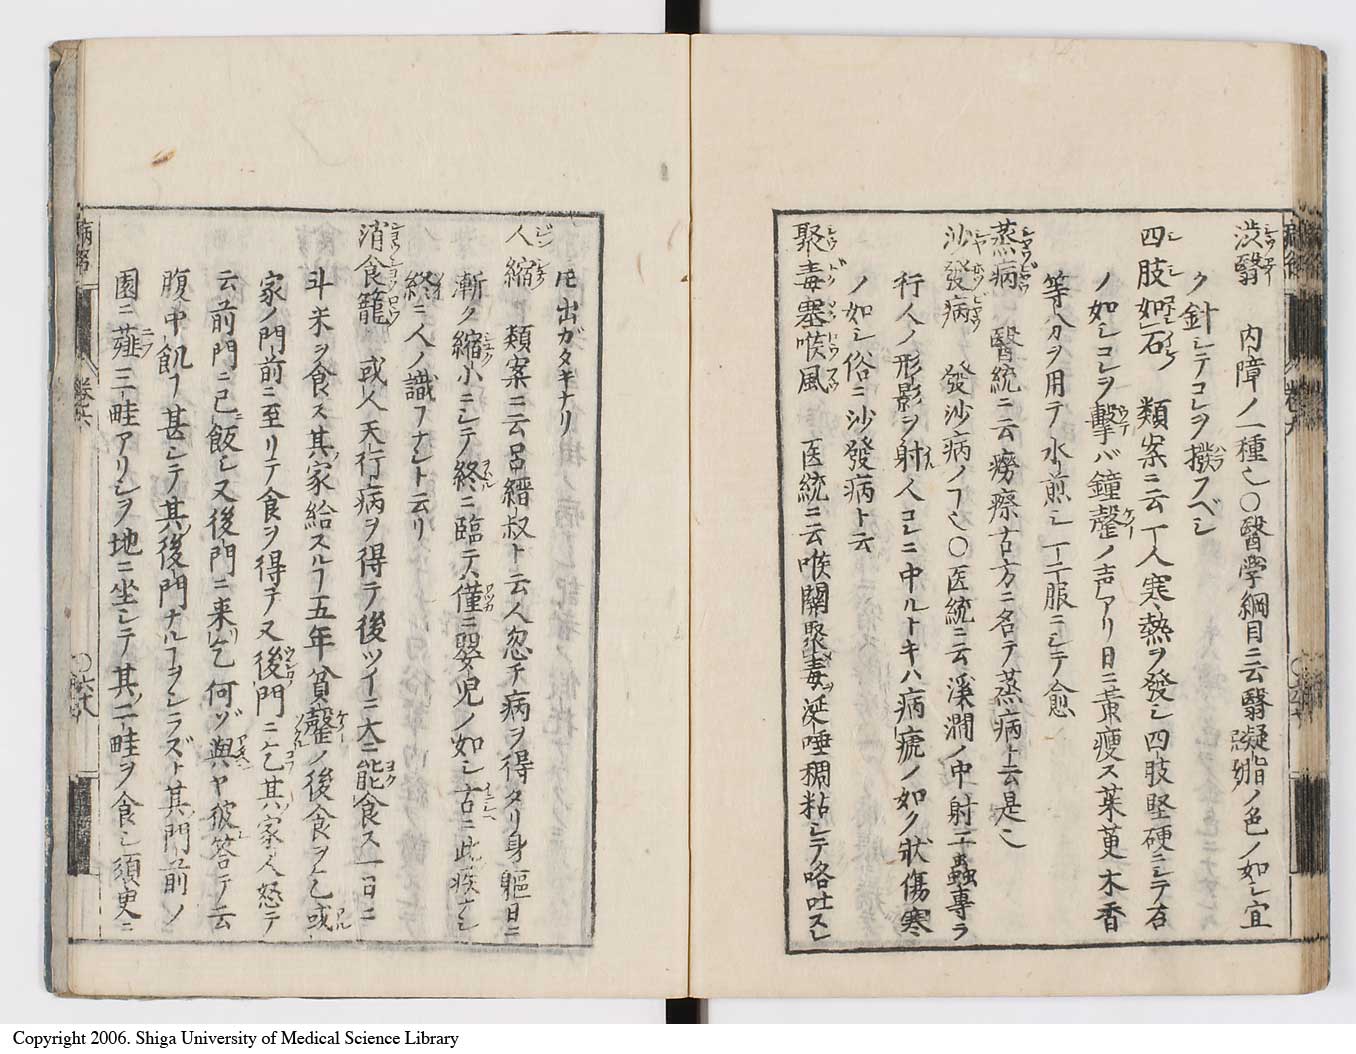 渋翳 内障ノ一種也〇醫学綱目ニ云翳凝脂ノ色ノ如シ宜
ク針シテコレヲ撥フベシ
四肢如石 類案ニ云一人寒熱ヲ發シ四肢堅硬ニシテ石
ノ如シコレヲ擊バ鐘磬ノ声アリ日ニ黄瘦ス茱萸木香
等分ヲ用テ水煎シ一二服ニシテ愈
蒸病 醫統ニ云癆瘵古方ニ名テ蒸病ト云是也
沙發病 發沙病ノ也〇医統ニ云溪澗ノ中射工蟲專ラ
行人ノ形影ヲ射人コレニ中ルトキハ病瘧ノ如ク狀傷寒
ノ如シ俗ニ沙發病ト云
聚毒塞喉風 医統ニ云喉關聚毒涎唾稠粘シテ咯吐スレ
𪜈出ガタキナリ
人縮 類案ニ云呂縉叔ト云人忽チ病ヲ得タリ身軀日ニ
漸ク縮小ニシテ終ニ臨テハ僅ニ嬰児ノ如シ古ニ此疾ナシ
終ニ人ノ識ナシト云リ
消食籠 或人天行病ヲ得テ後ツイニ大ニ能食ス一日ニ
斗米ヲ食ス其家給スルヿ五年貧罄ノ後食ヲ乞或
家ノ門前ニ至リテ食ヲ得テ又後門ニ乞其家人怒テ
云前門ニ已飯シ又後門ニ来乞何ゾ與ヤ彼答テ云
腹中飢ヿ甚シテ其後門ナルヿヲシラズト其門前ノ
園ニ薤三畦アリシヲ地ニ坐シテ其二畦ヲ食シ須臾ニ
卷六
〇六十八
Copyright 2006. Shiga University of Medical Science Library